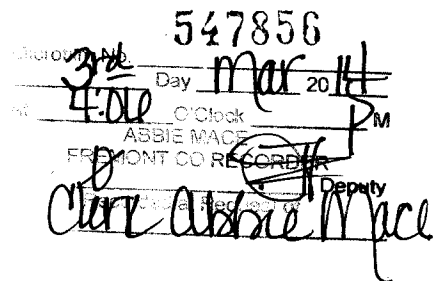 547856
Microfilm No.
3rd Day Mar 20 14
At 4:06 O'Clock P M
ABBIE MACE
FREMONT CO RECORDER
Deputy
Recorded at Request of
Clerk Abbie Mace